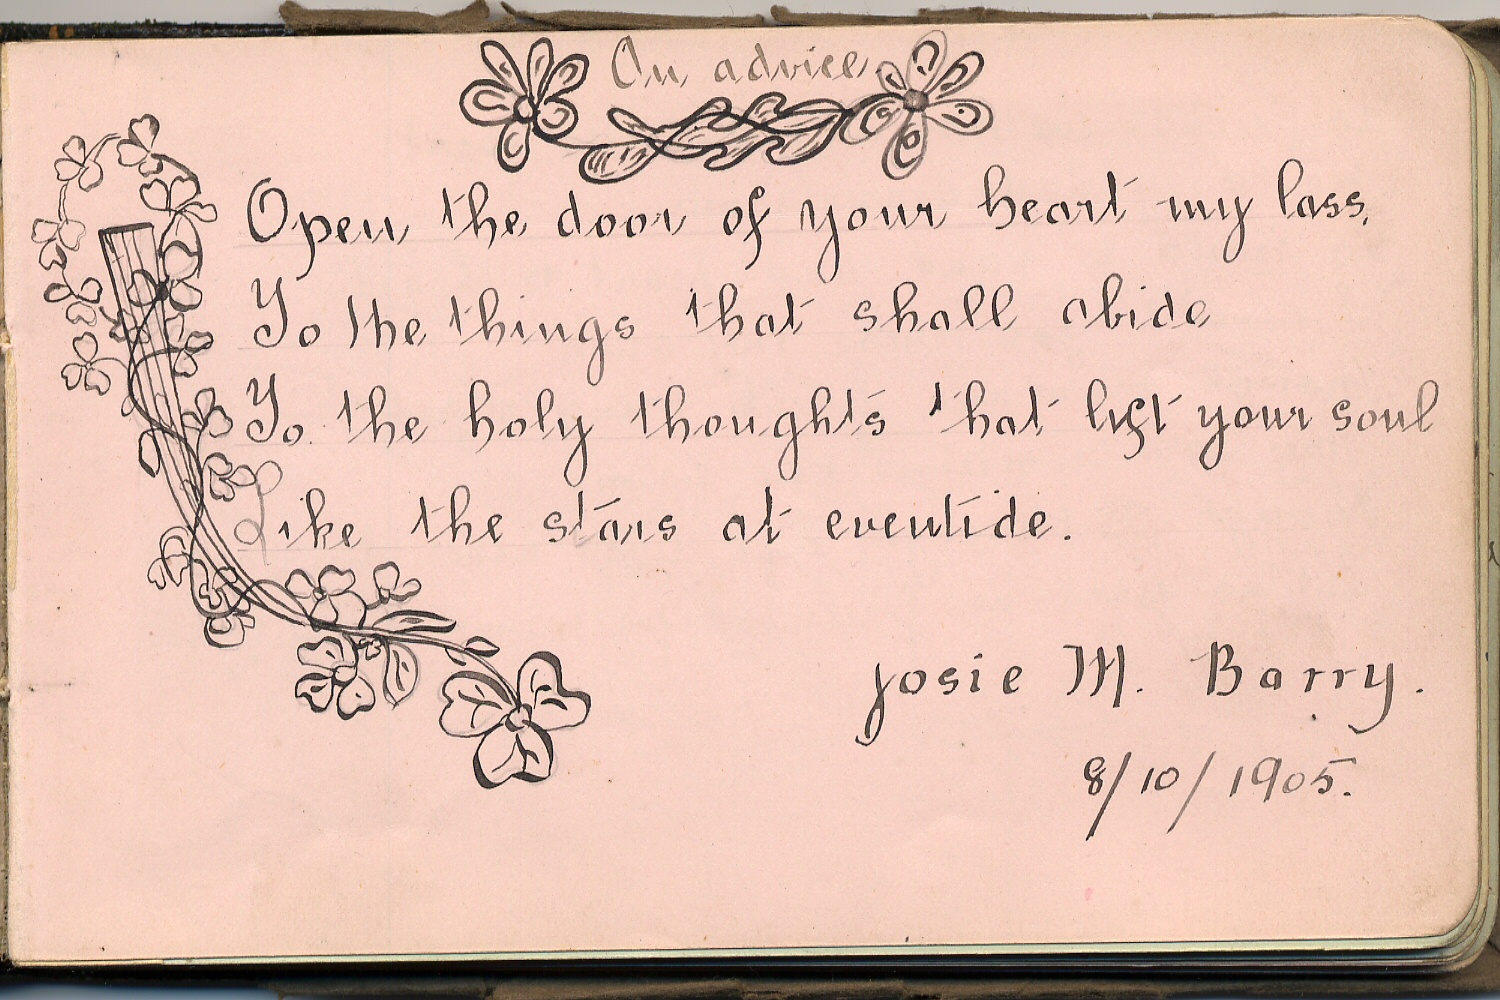 On advice
Open the door of your heart my lass,
To the things that shall abide
To the holy thoughts that lift your soul
Like the stars at eventide.
Josie M. Barry.
8/10/1905.